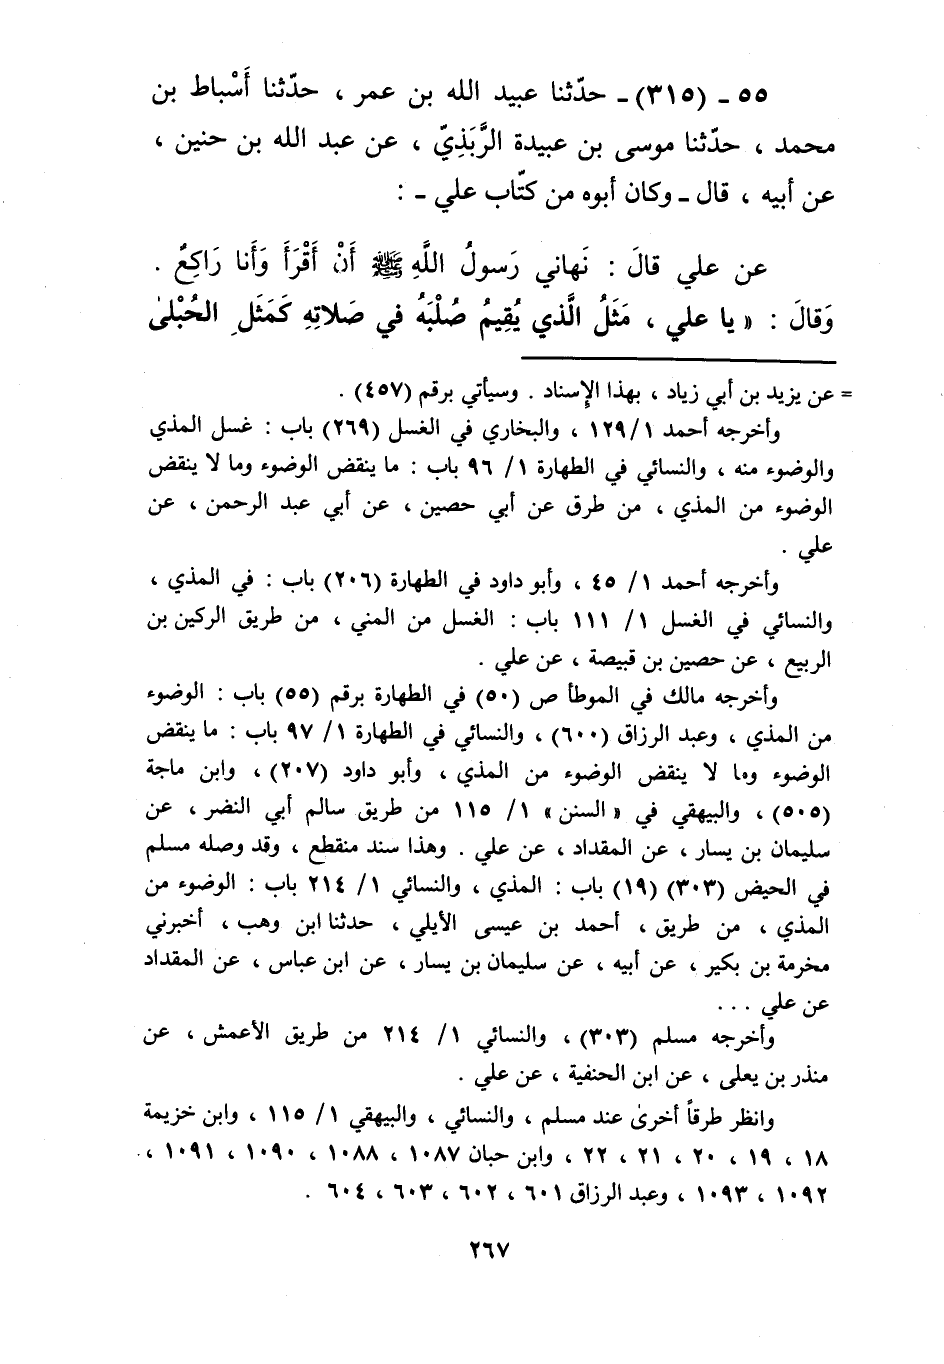 ٥٥ ـ (٣١٥) ـ حدّثنا عبيد الله بن عمر ، حدّثنا أَسْباط بن
محمد ، حدّثنا موسى بن عبيدة الرَّبَذِيّ ، عن عبد الله بن حنين ،
عن أبيه ، قال ـ وكان أبوه من كتّاب علي ـ :
عن علي قالَ : نَهاني رَسولُ اللَّهِ ﷺ أَنْ أَقْرَأَ وَأَنا رَاكِعٌ .
وَقالَ : « يا علي ، مَثَلُ الَّذي يُقِيمُ صُلْبَهُ في صَلاتِهِ كَمَثَلِ الحُبْلىٰ
= عن يزيد بن أبي زياد ، بهذا الإسناد . وسيأتي برقم (٤٥٧) .
وأخرجه أحمد ١/ ١٢٩ ، والبخاري في الغسل (٢٦٩) باب : غسل المذي
والوضوء منه ، والنسائي في الطهارة ١/ ٩٦ باب : ما ينقض الوضوء وما لا ينقض
الوضوء من المذي ، من طرق عن أبي حصين ، عن أبي عبد الرحمن ، عن
علي .
وأخرجه أحمد ١/ ٤٥ ، وأبو داود في الطهارة (٢٠٦) باب : في المذي ،
والنسائي في الغسل ١/ ١١١ باب : الغسل من المني ، من طريق الركين بن
الربيع ، عن حصين بن قبيصة ، عن علي .
وأخرجه مالك في الموطأ ص (٥٠) في الطهارة برقم (٥٥) باب : الوضوء
من المذي ، وعبد الرزاق (٦٠٠) ، والنسائي في الطهارة ١/ ٩٧ باب : ما ينقض
الوضوء وما لا ينقض الوضوء من المذي ، وأبو داود (٢٠٧) ، وابن ماجة
(٥٠٥) ، والبيهقي في « السنن » ١/ ١١٥ من طريق سالم أبي النضر ، عن
سليمان بن يسار ، عن المقداد ، عن علي . وهذا سند منقطع ، وقد وصله مسلم
في الحيض (٣٠٣) (١٩) باب : المذي ، والنسائي ١/ ٢١٤ باب : الوضوء من
المذي ، من طريق ، أحمد بن عيسى الأيلي ، حدثنا ابن وهب ، أخبرني
مخرمة بن بكير ، عن أبيه ، عن سليمان بن يسار ، عن ابن عباس ، عن المقداد
عن علي . . .
وأخرجه مسلم (٣٠٣) ، والنسائي ١/ ٢١٤ من طريق الأعمش ، عن
منذر بن يعلى ، عن ابن الحنفية ، عن علي .
وانظر طرقاً أخرىٰ عند مسلم ، والنسائي ، والبيهقي ١/ ١١٥ ، وابن خزيمة
١٨ ، ١٩ ، ٢٠ ، ٢١ ، ٢٢ ، وابن حبان ١٠٨٧ ، ١٠٨٨ ، ١٠٩٠ ، ١٠٩١ ،
١٠٩٢ ، ١٠٩٣ ، وعبد الرزاق ٦٠١ ، ٦٠٢ ، ٦٠٣ ، ٦٠٤ .
٢٦٧